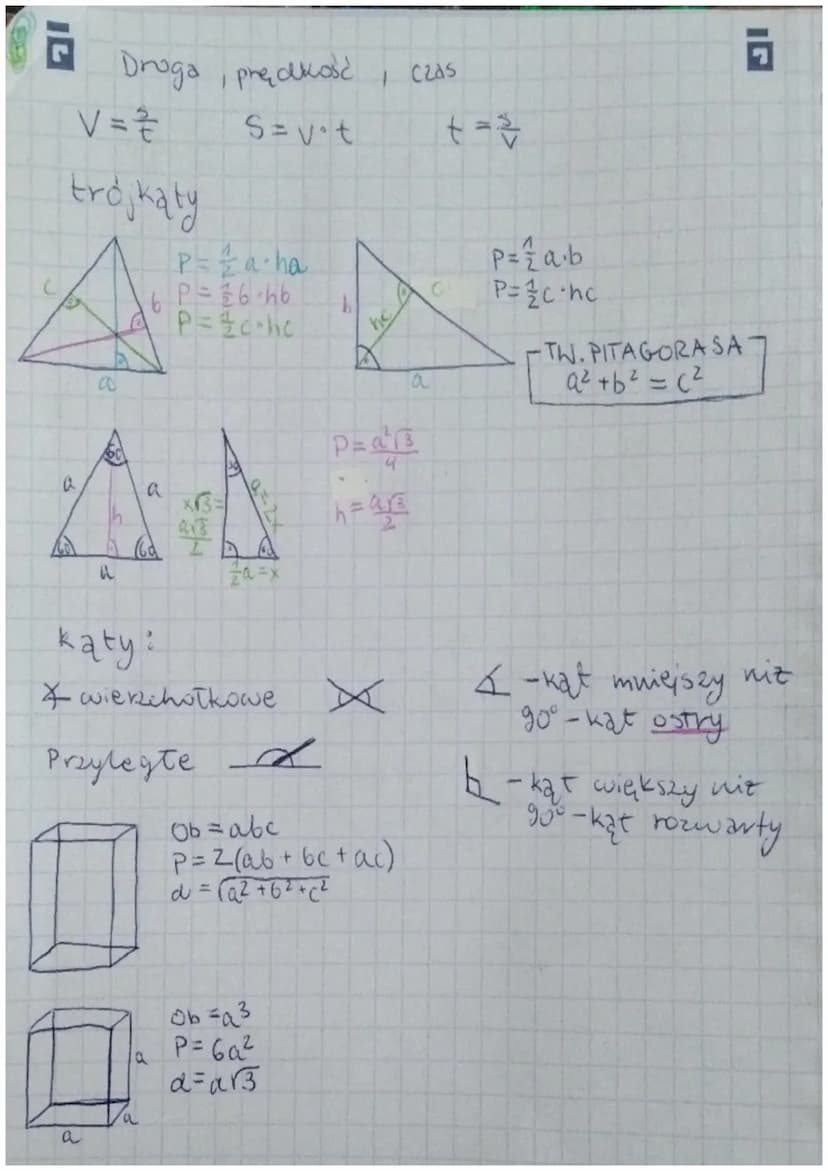 Droga, prędkość, czas
V = s/t    S = v·t    t = s/v
trójkąty
P = 1/2 a·ha
P = 1/2 b·hb
P = 1/2 c·hc
c
b
a
P = 1/2 a·b
P = 1/2 c·hc
b
hc
c
a
TW. PITAGORASA
a² + b² = c²
60
a
a
h
60
60
a
30
x√3 =
a√3/2
a=2x
60
1/2 a = x
P = a²√3/4
h = a√3/2
kąty:
∡ wierzchołkowe
Przyległe
∡ - kąt mniejszy niż
90° - kąt ostry
- kąt większy niż
90° - kąt rozwarty
Ob = abc
P = 2(ab + bc + ac)
d = √a² + b² + c²
Ob = a³
P = 6a²
d = a√3
a
a
a